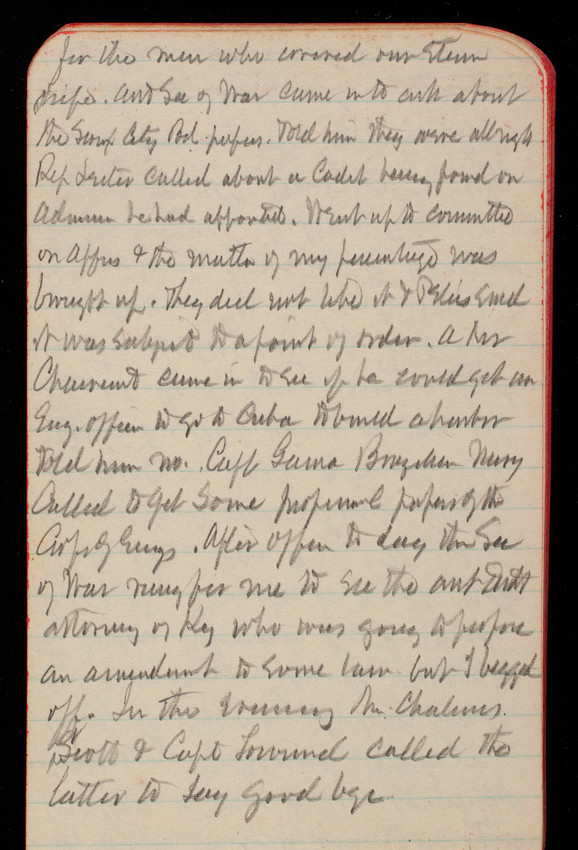 for the men who covered our Steam
pipe. Asst Sec of War came in to ask about
the Sioux City Bd. papers. Told him they were all right
Rep Lester called about a Cadet being found on
he had appointed. Went up to committee
on Appns & the matter of my percentage was
brought up. They did not like it & said
it was subject to a point of order. A Mr
came in to see if he could get an
Eng. officer to go to Cuba to build a harbor
told him no. Capt Gama Brazilian Navy
called to get some professional papers of the
Corps of Engs. After office to day the Sec
of War rang for me to see the
attorney of Ky who was going to propose
an amendment to some law but I begged
off. In the evening Mr. Chalmers.
Scott & Capt Townsend called the
latter to say good bye